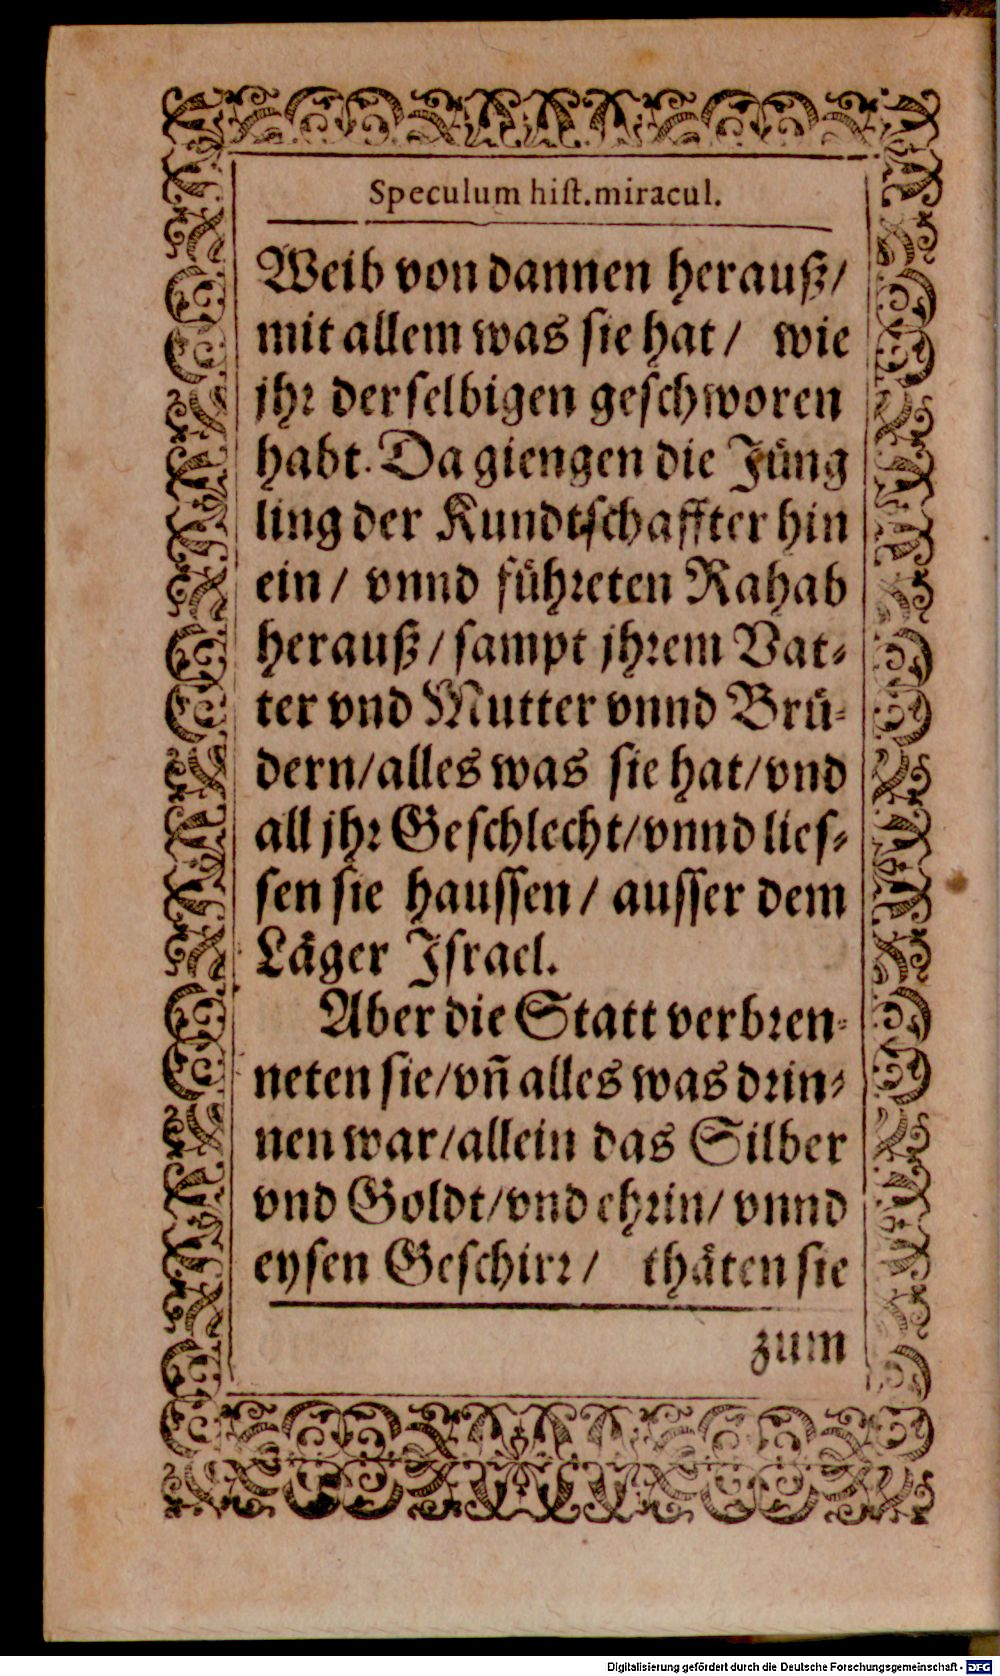 Speculum hiſt. miracul.
Weib von dannen herauß/
mit allem was ſie hat/ wie
jhr derſelbigen geſchworen
habt. Da giengen die Jüng
ling der Kundtſchaffter hin
ein/ vnnd führeten Rahab
herauß/ ſampt jhrem Vat⸗
ter vnd Mutter vnnd Brü⸗
dern/ alles was ſie hat/ vnd
all jhr Geſchlecht/ vnnd lieſ⸗
ſen ſie hauſſen/ auſſer dem
Läger Jſrael.
Aber die Statt verbren⸗
neten ſie/ vñ alles was drin⸗
nen war/ allein das Silber
vnd Goldt/ vnd ehrin/ vnnd
eyſen Geſchirr/ thäten ſie
zum
Digitalisierung gefördert durch die Deutsche Forschungsgemeinschaft - DFG